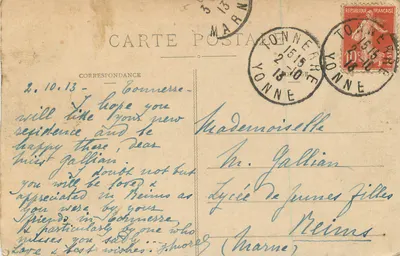 3
13
MARN
CARTE POSTA
TONNERRE
15 15
2-10
13
YONNE
TONNERRE
15 15
2-10
YONNE
10
CORRESPONDANCE
2.10.13 - Tonnerre -
I hope you
will like your new
residence and be
happy there, dear
miss Gallian.
I doubt not but
you will be loved &
appreciated in Reims as
you were by your
friends in Tonnerre
& particularly by one who
misses you sadly...
Love & best wishes.
Mademoiselle
M. Gallian
Lycée de jeunes filles
Reims
(Marne)